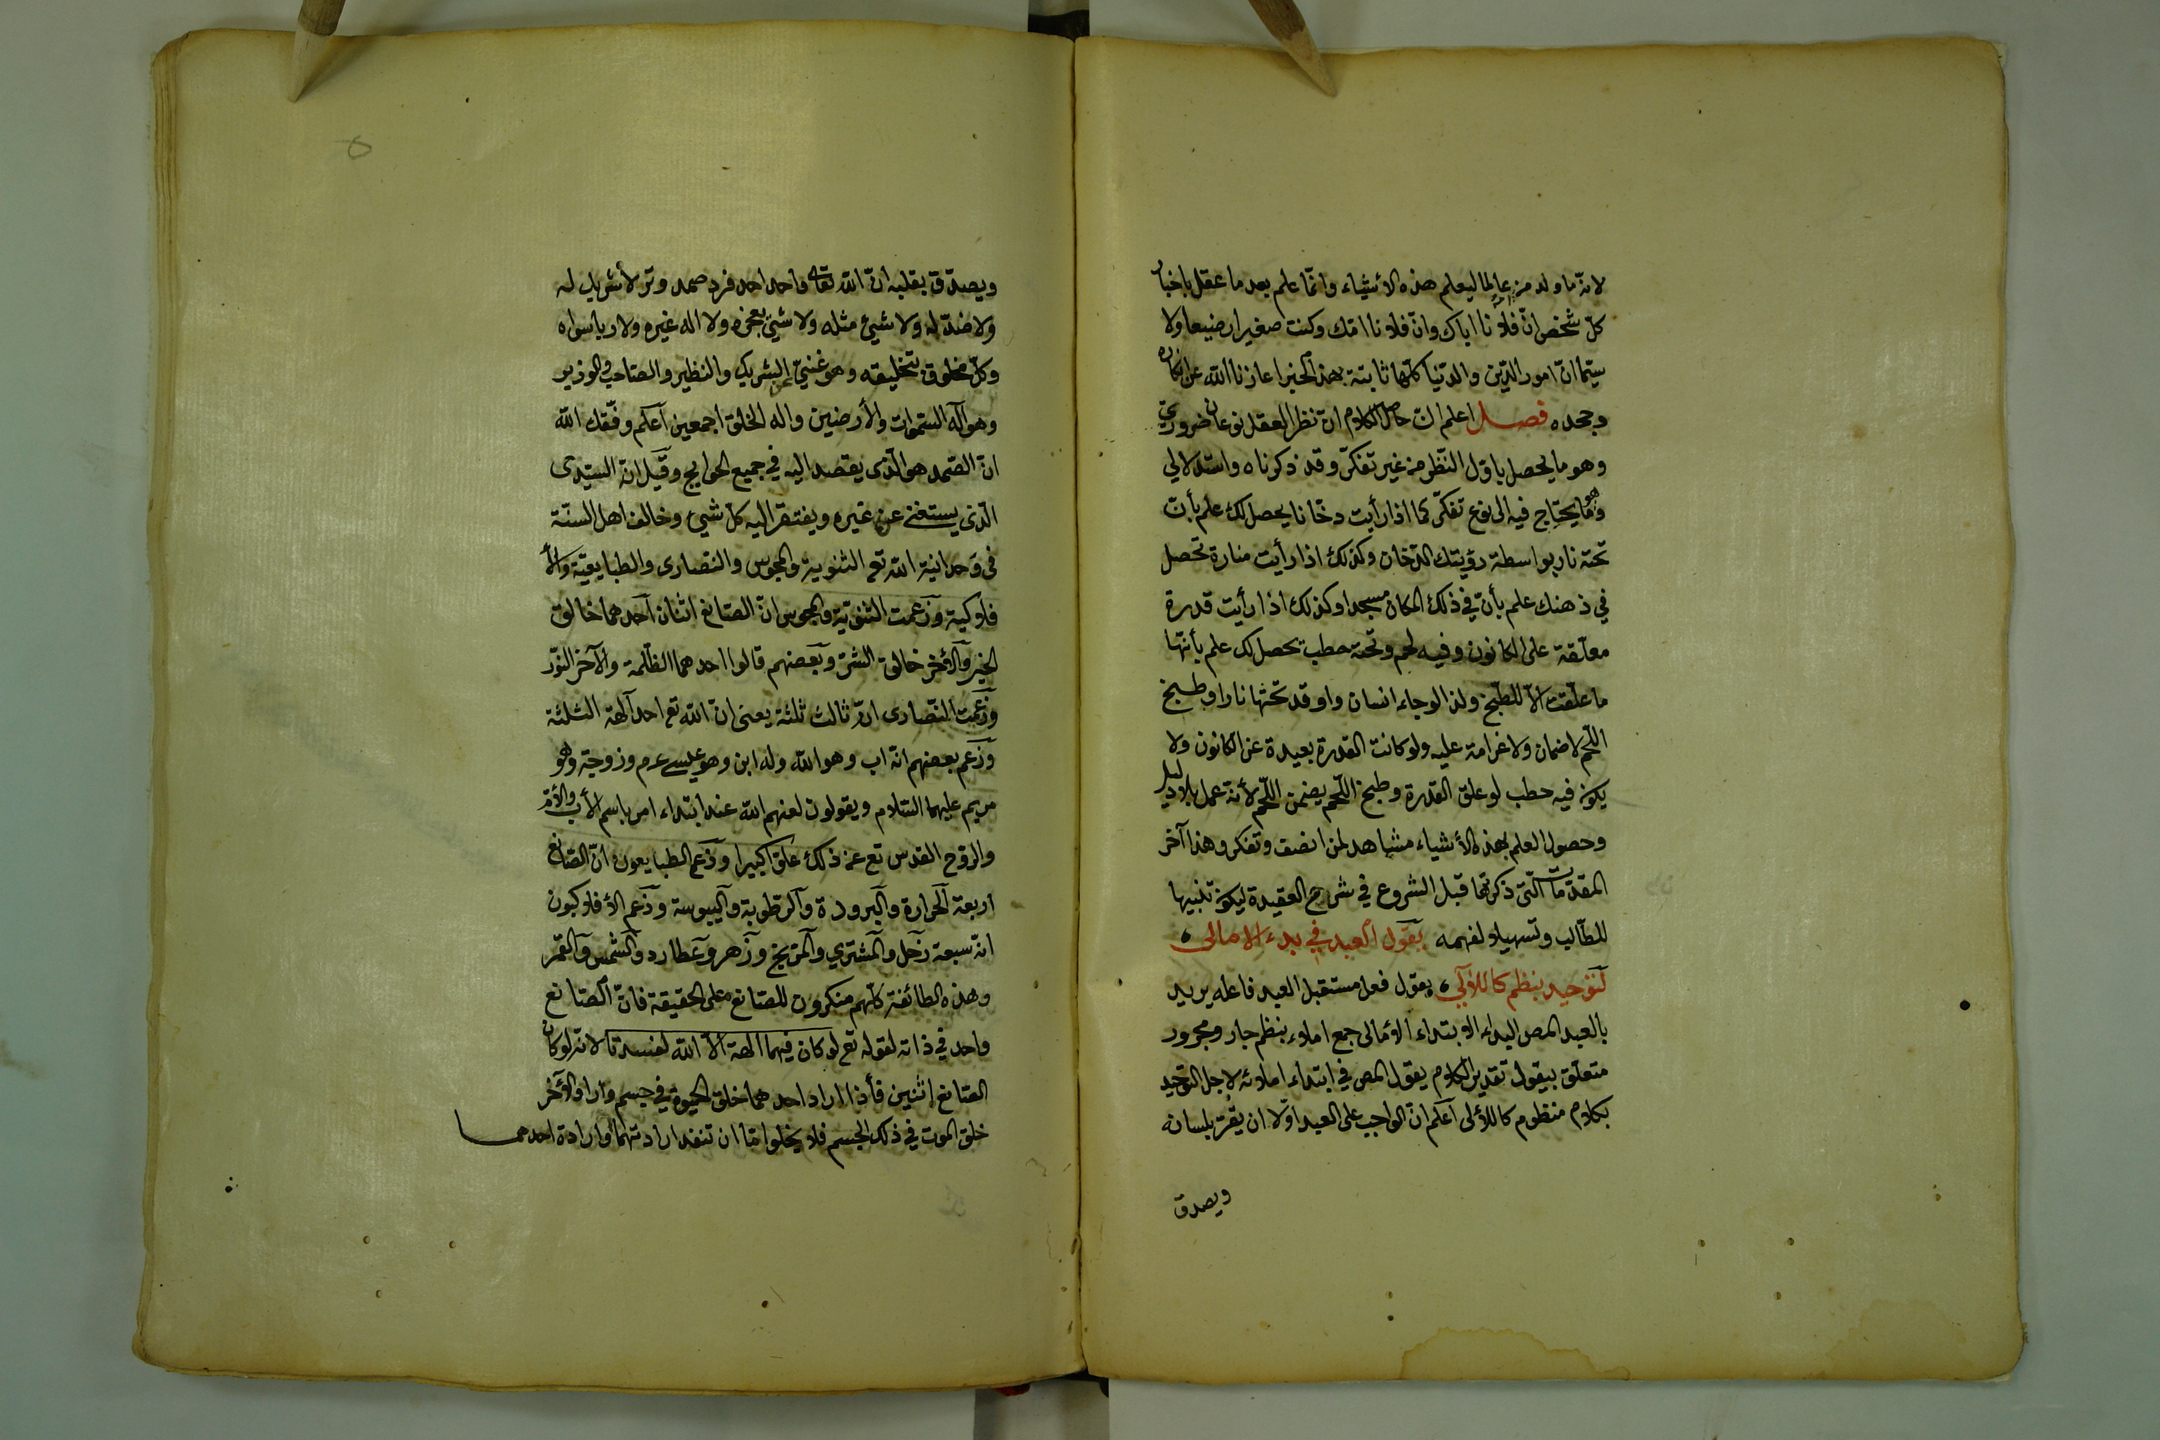 لانه ما ولد من امه عالما ليعلم هذه الأشياء وانما علم بعد ما عقل باخبار
كل شخص ان فلانا اباك وان فلانا امك وكنت صغيرا رضيعا ولا
سيما ان امور الدين والدنيا كلها ثابتة بهذ الخبر اعاذنا الله عن انكاره
وجحده فصل اعلم ان حاصل الكلام ان نظر العقل نوعان ضروري
وهو ما يحصل باول النظر من غير تفكر وقد ذكرناه واستدلالي
وهو ما يحتاج فيه الى نوع تفكر كما اذا رأيت دخانا يحصل لك علم بأن
تحته نار بواسطة رؤيتك الدخان وكذلك اذا رأيت منارة تحصل
في ذهنك علم بأن في ذلك المكان مسجدا وكذلك اذا رأيت قدرة
معلقة على الكانون وفيه لحم وتحته حطب يحصل لك علم بأنها
ما علقت الا للطبخ ولذا لو جاء انسان واوقد تحتها نارا وطبخ
اللحم لا ضمان ولا غرامة عليه ولو كانت القدرة بعيدة عن الكانون ولا
يكون فيه حطب لو علق القدرة وطبخ اللحم يضمن اللحم لأنه عمل بلا دليل
وحصول العلم بهذه الأشياء مشاهد لمن انصف وتفكر وهذا آخر
المقدمات التي ذكرتها قبل الشروع في شرح العقيدة ليكون تنبيها
للطالب وتسهيلا لفهمه يقول العبد في بدء الامالى
لتوحيد بنظم كاللآلي يقول فعل مستقبل العبد فاعله يريد
بالعبد المص البداء الابتداء الأمالى جمع املاء بنظم جار ومجرور
متعلق بيقول تقدير الكلام يقول المص في ابتداء املائه لاجل التوحيد
بكلام منظوم كاللألى اعلم ان الواجب على العبد اولا ان يقر بلسانه
ويصدق
ويصدق بقلبه ان الله تعالى واحد احد فرد صمد وتر لا شريك له
ولا ضد له ولا شيئ مثله ولا شيئ يعجزه ولا اله غيره ولا رب سواه
وكل مخلوق بتخليقه وهو غني عن الشريك والنظير والصاحب والوزير
وهو آله السموات والأرضين واله الخلق اجمعين اعلم وفقك الله
ان الصمد هو الذى يقصد اليه في جميع الحوايج وقيل انه السيد
الذي يستغنى عن غيره ويفتقر اليه كل شيئ وخالف اهل السنة
فى وحدانية الله تع الثنوية والمجوس والنصارى والطبايعية والأ
فلاوكية وزعمت الثنوية والمجوس ان الصانع اثنان احدهما خالق
الخير والآخر خالق الشر وبعضهم قالوا احدهما الظلمة والآخر النور
وزعمت النصارى انه ثالث ثلثة يعنى ان الله تع احد آلهة الثلثة
وزعم بعضهم انه اب وهو الله وله ابن وهو عيسى عم وزوجة وهو
مريم عليهما السلام ويقولون لعنهم الله عند ابتداء امر باسم الأب والأم
والروح القدس تع عن ذلك علوا كبيرا وزعم الطبايعون ان الصانع
اربعة الحرارة والبرودة والرطوبة واليبوسة وزعم الأفلاوكيون
انه سبعة زحل والمشتري والمريخ وزهر وعطارد والشمس والقمر
وهذه الطائفة كلهم منكرون للصانع على الحقيقة فان الصانع
واحد في ذاته لقوله تع لو كان فيهما الهة الا الله لفسدتا لانه لو كان
الصانع إثنين فأذا اراد احدهما خلق الحيوة في جسم واراد الآخر
خلق الموت في ذلك الجسم فلا يخلوا اما ان تنفد ارادتهما او ارادة احدهما